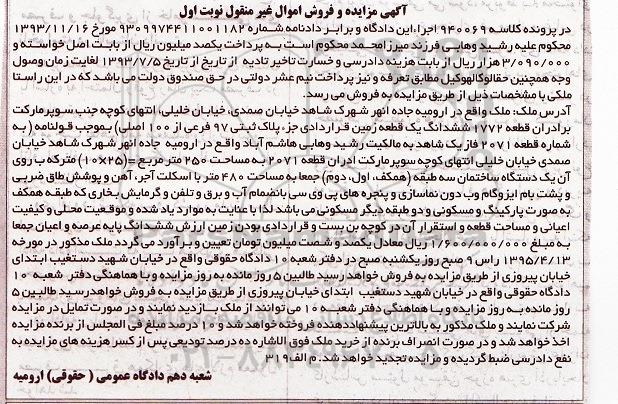 آگهی مزایده و فروش اموال غیر منقول نوبت اول
در پرونده کلاسه ۹۴۰۰۶۹ اجراء این دادگاه و برابر دادنامه شماره ۹۳۰۹۹۷۴۴۱۱۰۰۱۱۸۲ مورخ ۱۳۹۳/۱۱/۱۶
محکوم علیه رشید وهابی فرزند میرزامحمد محکوم است به پرداخت یکصد میلیون ریال از بابت اصل خواسته و
۳/۰۹۰/۰۰۰ هزار ریال از بابت هزینه دادرسی و خسارت تاخیر تادیه از تاریخ از تاریخ ۱۳۹۳/۷/۵ لغایت زمان وصول
وجه همچنین حقالوکالهوکیل مطابق تعرفه و نیز پرداخت نیم عشر دولتی در حق صندوق دولت می باشد که در این راستا
ملکی با مشخصات ذیل از طریق مزایده به فروش می رسد.
آدرس ملک: ملک واقع در ارومیه جاده انهر شهرک شاهد خیابان صمدی، خیابان خلیلی، انتهای کوچه جنب سوپرمارکت
برادران قطعه ۱۷۷۲ ششدانگ یک قطعه زمین قراردادی جزء پلاک ثبتی ۹۷ فرعی از ۱۰۰ اصلی) بموجب قولنامه ( به
شماره قطعه ۲۰۷۱ فاز یک شاهد به مالکیت رشید وهابی هاشم آباد واقع در ارومیه جاده انهر شهرک شاهد خیابان
صمدی خیابان خلیلی انتهای کوچه سوپرمارکت ادران قطعه ۲۰۷۱ به مساحت ۲۵۰ متر مربع =(۲۵×۱۰) مترکه ب روی
آن یک دستگاه ساختمان سه طبقه (همکف، اول، دوم) جمعا به مساحت ۴۸۰ متر با اسکلت آجر، آهن و پوشش طاق ضربی
و پشت بام ایزوگام وب دون نماسازی و پنجره های پی وی سی بانضمام آب و برق و تلفن و گرمایش بخاری که طبقه همکف
به صورت پارکینگ و مسکونی و دو طبقه دیگر مسکونی می باشد لذا با عنایت به موارد یاد شده و موقعیت محلی و کیفیت
اعیانی و مساحت قطعه و استقرار آن در کوچه بن بست و قراردادی بودن زمین ارزش ششدانگ پایه عرصه و اعیان جمعا
به مبلغ ۱/۶۰۰/۰۰۰/۰۰۰ ریال معادل یکصد و شصت میلیون تومان تعیین و برآورد می گردد ملک مذکور در مورخه
۱۳۹۵/۴/۱۳ راس ۹ صبح روز یکشنبه صبح در دفتر شعبه ۱۰ دادگاه حقوقی واقع در خیابان شهید دستغیب ابتدای
خیابان پیروزی از طریق مزایده به فروش خواهد رسید طالبین ۵ روز مانده به روز مزایده و با هماهنگی دفتر شعبه ۱۰
دادگاه حقوقی واقع در خیابان شهید دستغیب ابتدای خیابان پیروزی از طریق مزایده به فروش خواهد رسید طالبین ۵
روز مانده به روز مزایده و با هماهنگی دفتر شعبه ۱۰ می توانند از ملک بازدید نمایند و در صورت تمایل در مزایده
شرکت نمایند و ملک مذکور به بالاترین پیشنهاد دهنده فروخته خواهد شد و ۱۰ درصد مبلغ فی المجلس از برنده مزایده
اخذ خواهد شد و در صورت انصراف برنده از خرید ملک فوق الاشاره ده درصد تودیعی پس از کسر هزینه های مزایده به
نفع دادرسی ضبط گردیده و مزایده تجدید خواهد شد. م الف ۳۱۹
شعبه دهم دادگاه عمومی ( حقوقی) ارومیه